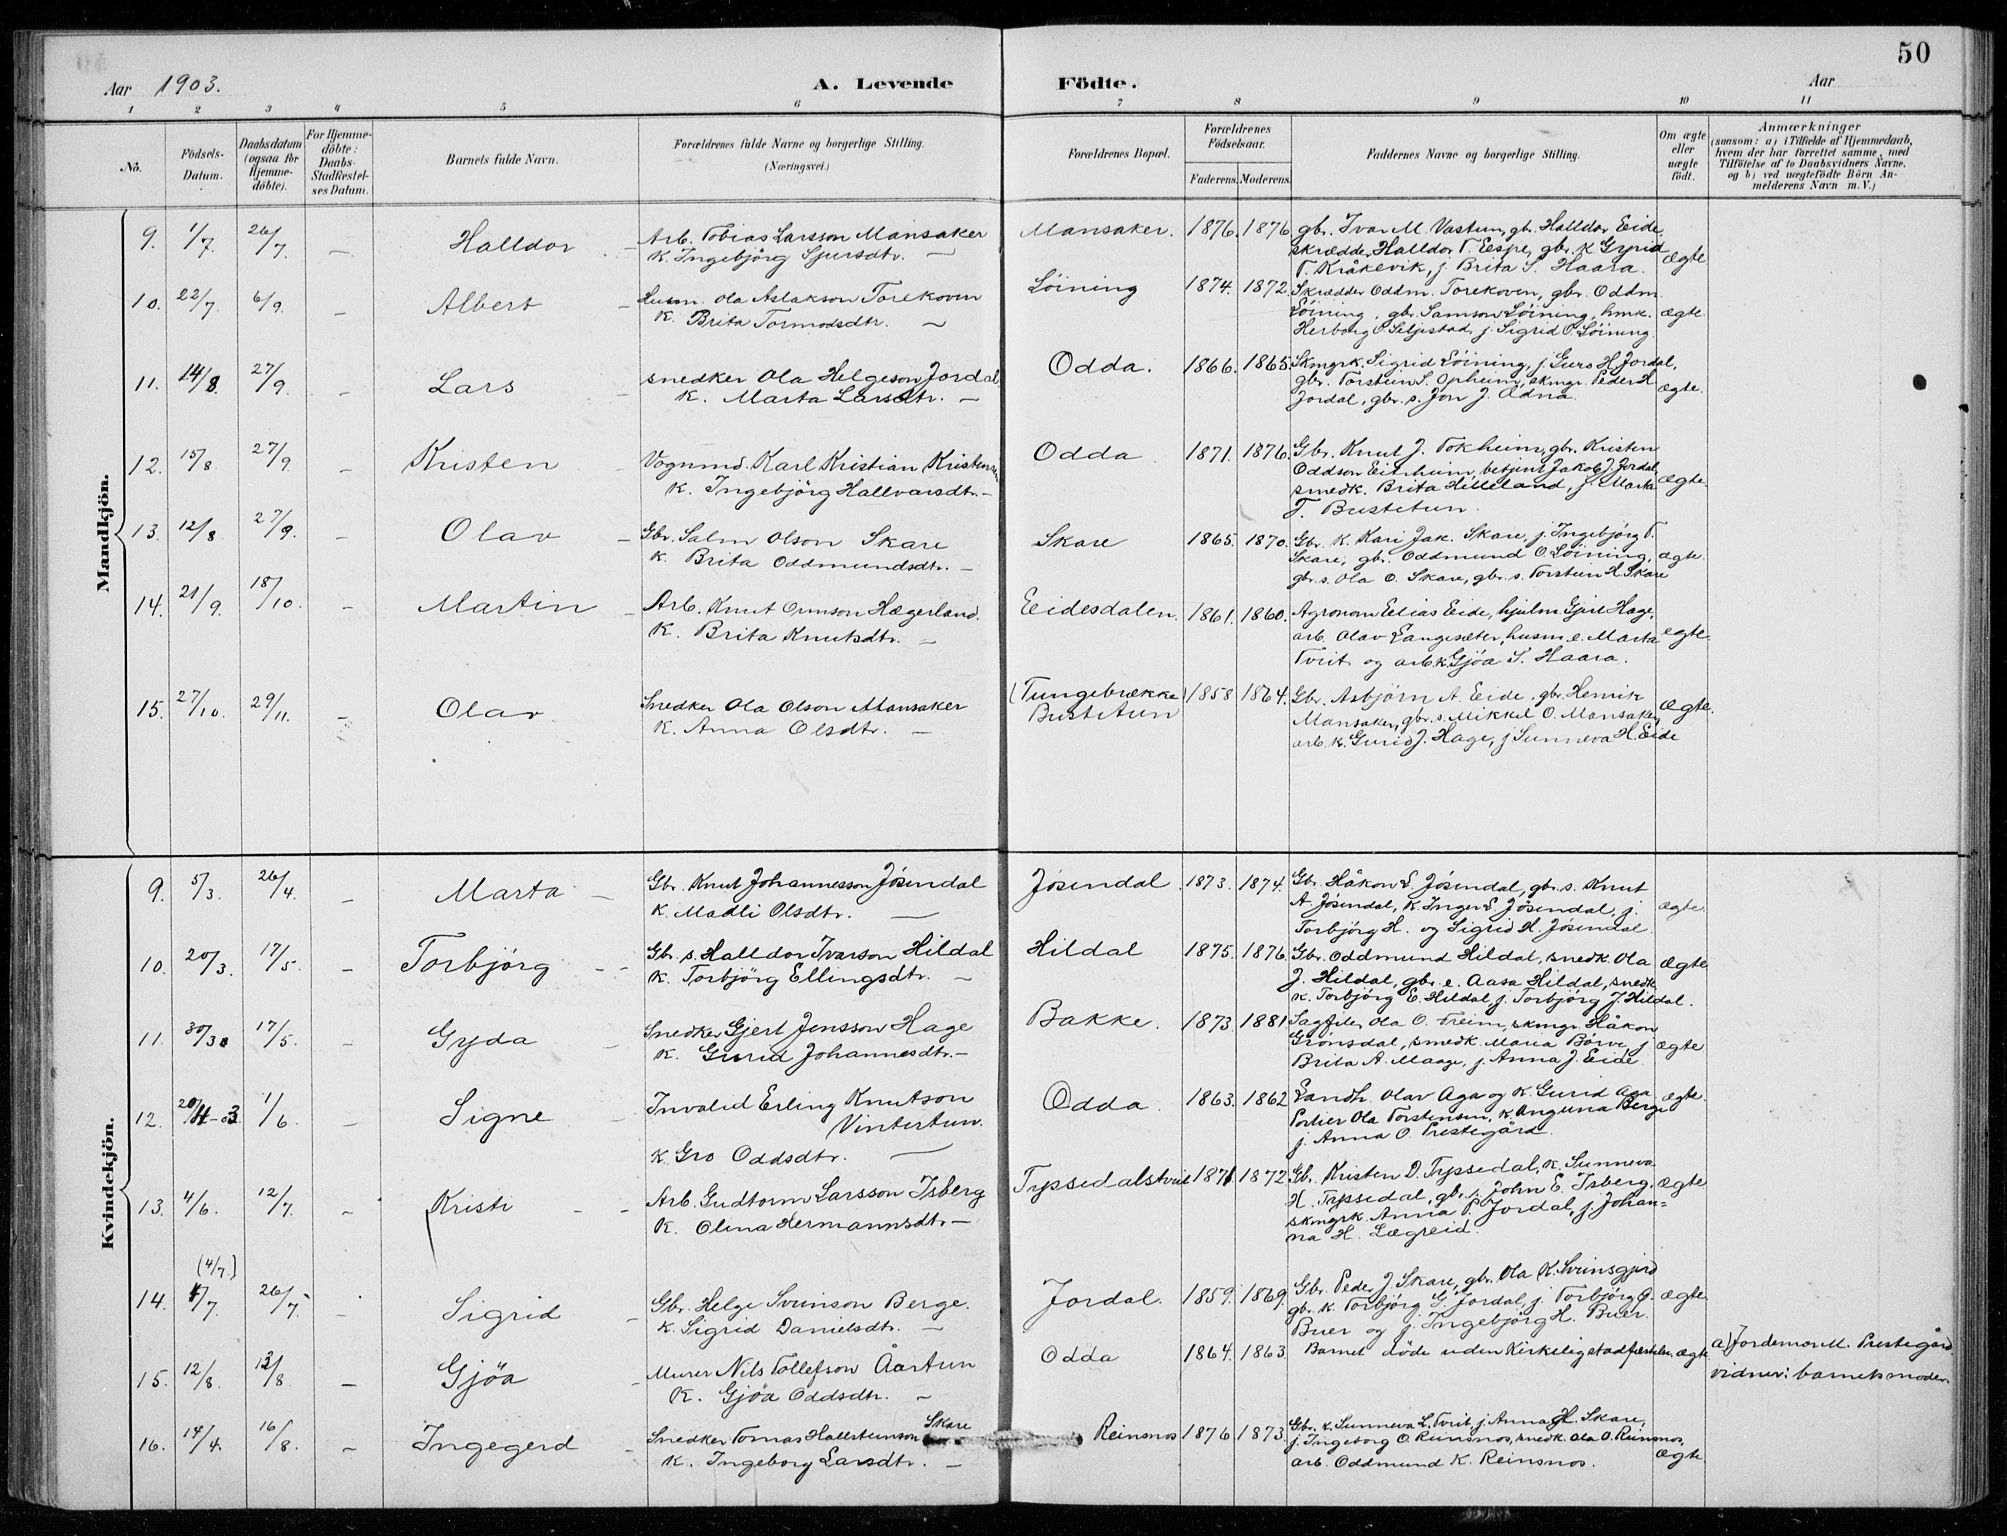 50
Aar 1903.
A. Levende Födte.
Aar
1 2 3 4 5 6 7 8 9 10 11
No.
Födsels-
Datum.
Daabsdatum
(ogsaa for
Hjemme-
döbte).
For Hjemme-
döbte:
Daabs-
Stadfæstel-
ses Datum.
Barnets fulde Navn.
Forældrenes fulde Navne og borgerlige Stilling.
(Næringsvei.)
Forældrenes Bopæl.
Forældrenes
Födselsaar.
Faderens. Moderens.
Faddernes Navne og borgerlige Stilling.
Om ægte
eller
uægte
födt.
Anmærkninger
(saasom: a) i Tilfælde af Hjemmedaab,
hvem der har forrettet samme, med
Tilföielse af to Daabsvidners Navne,
og b) ved uægtefödte Börn An-
melderens Navn m. V.)
Mandkjön.
9. 1/7 26/7. — Halldor — Arb. Tobias Larsson Mansaker
K. Ingebjörg Sjursdtr. —
Mansaker. 1876. 1876 gbr. Ivar M. Vastun, gb. Halldor Eide,
skrædder Halldor T. Espe, gbr. K Gyrid
T. Kråkevik, j. Brita S. Haara. ægte
10. 22/7. 6/9. — Albert — Husm. Ola Aslakson Torekoven
K. Brita Tormodsdtr. —
Löining 1874. 1872. Skrædder Oddm. Torekoven, gbr. Oddm.
Löining, gbr. Samson Löining, hmk.
Herborg O Seljestad, j. Sigrid O. Löining. ægte.
11. 14/8. 27/9. — Lars — Snedker Ola Helgeson Jordal,
K. Marta Larsdtr. —
Odda. 1866. 1865. Skmgrk. Sigrid Löining, j. Guro H Jordal,
gbr. Torstein S. Opheim, skmgr. Peder H
Jordal, gbr. s. Jon J. Ådna. ægte.
12. 15/8. 27/9. — Kristen Vognmd. Karl Kristian Kristensen
K. Ingebjörg Hallvarsdtr. —
Odda 1871. 1876. Gbr. Knut J. Tokheim, gbr. Kristen
Oddson Eitrheim, betjent Jakob J. Jordal,
smedk. Brita Hilleland, j. Marta
T. Bustetun. ægte.
13. 12/8 27/9. — Olav — Gbr. Salm Olson Skare
K. Brita Oddmundsdtr. —
Skare 1865. 1870. Gbr. K. Kari Jak. Skare, j. Ingebjörg T.
Skare, gbr. Oddmund O. Löining,
gbr. s. Ola O. Skare, gbr. s. Torstein H. Skare ægte.
14. 21/9. 18/10. — Martin — Arb. Knut Ormson Hægerland.
K. Brita Knutsdtr. —
Eidesdalen. 1861. 1860. Agronom Elias Eide, hjulm Gjert Hage,
arb. Olav Langesæter, husm e. Marta
Tveit og arb. k. Gjöa S. Haara. egte.
15. 27/10. 29/11. — Olav Snedker Ola Olson Mansaker
K. Anna Olsdtr. —
(Tungebrække)
Bustetun 1858 1864. Gbr. Asbjörn A. Eide, gbr. Henrik
Mansaker, gbr. s. Mikkel O. Mansaker,
arb. k. Gurid J. Hage, j. Sunneva H. Eide ægte.
Kvindekjön.
9. 5/3. 26/4. — Marta — Gbr. Knut Johannesson Jösendal
K. Madli Olsdtr. —
Jösendal 1873. 1874. Gbr. Håkon L. Jösendal, gbr. s. Knut
A. Jösendal, K. Inger L. Jösendal, j.
Torbjörg H. og Sigrid H. Jösendal. ægte.
10. 20/3. 17/5. — Torbjörg — Gbr. s. Halldor Ivarson Hildal
K. Torbjörg Ellingsdtr. —
Hildal 1875. 1876. Gbr. Oddmund Hildal, snedk. Ola
J. Hildal, gbr. e. Aasa Hildal, snedk
k. Torbjörg E. Hildal, j. Torbjörg J. Hildal. ægte
11. 30/3 17/5. — Gyda — Snedker Gjert Jensson Hage
K. Gurid Johannesdtr. —
Bakke. 1873. 1881 Sagfiler Ola O. Freim, skmgr. Håkon
Grönsdal, smedk. Maria Börve, j.
Brita A. Maage, j. Anna J. Eide ægte
12. 20/4-03 1/6. — Signe — Invalid Erling Knutson
Vintertun.
K Gro Oddsdtr. —
Odda. 1863. 1862 Landh. Olav Aga og K. Gurid Aga
Portier Ola Torstensen, K. Berge
j. Anna O. Prestegård. ægte.
13. 4/6. 12/7. — Kristi — Arb. Gudtorm Larsson Isberg
K. Olina Hermannsdtr. —
Tyssedalstveit 1871. 1872 Gbr. Kristen D. Tyssedal, K. Sunneva
H. Tyssedal, gbr. s. John E. Isberg,
skmgrk. Anna P. Jordal, j. Johan=
na H. Lægreid. ægte
(4/7.)
14. 1/7. 26/7. — Sigrid — Gbr. Helge Sveinson Berge.
K. Sigrid Danielsdtr. —
Jordal. 1859. 1869. Gbr. Peder J Skare, gbr. Ola K. Sveinsgjerd
gbr. K. Torbjörg G. Jordal, j. Torbjörg O.
Buer og j. Ingebjörg H. Buer. ægte.
15. 12/8. 13/8. — Gjöa — Murer Nils Tollefson Åartun
K. Gjöa Oddsdtr. —
Odda 1864. 1863. Barnet döde uden Kirkelig stadfæstelse. ægte a) Jordemor M. Prestegård.
vidner: barnets moder.
16. 14/4. 16/8. — Ingegerd — Snedker Tomas Hallsteinson Skare
K. Ingeborg Larsdtr. —
Reinsnos 1876. 1873. Gbr. k. Sunneva L. Tveit, j. Anna H. Skare,
j. Ingeborg O. Reinsnos, snedk. Ola O. Reinsnos,
arb. Oddmund K. Reinsnos. ægte